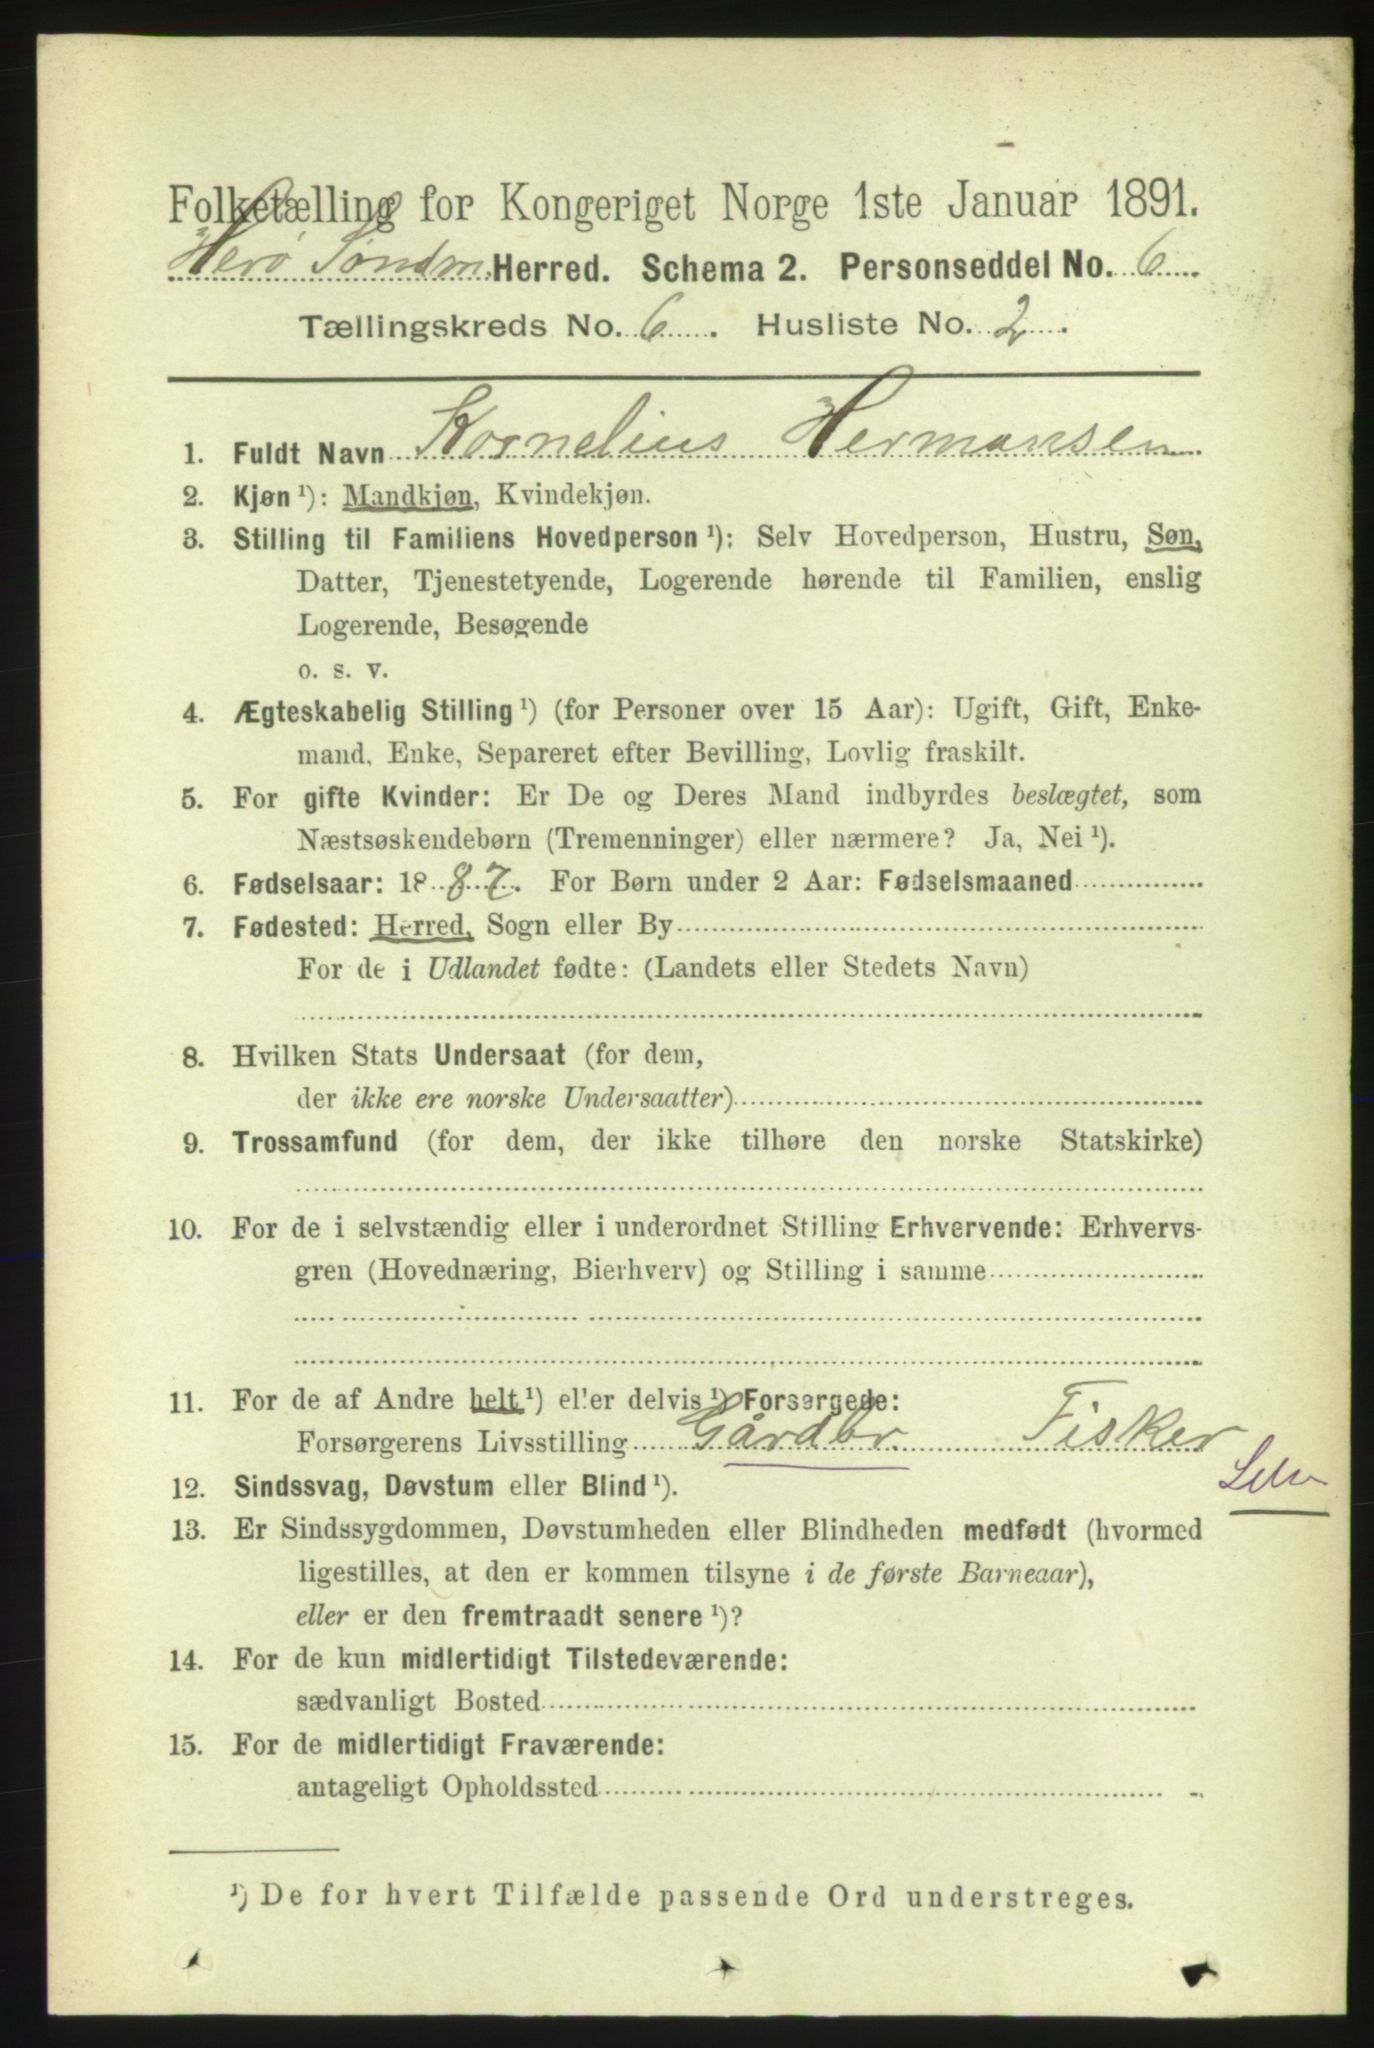 Folketælling for Kongeriget Norge 1ste Januar 1891.
Herø Søndm. Herred. Schema 2. Personseddel No. 6
Tællingskreds No. 6. Husliste No. 2.
1. Fuldt Navn Kornelius Hermansen
2. Kjøn ¹): Mandkjøn, Kvindekjøn.
3. Stilling til Familiens Hovedperson ¹): Selv Hovedperson, Hustru, Søn,
Datter, Tjenestetyende, Logerende hørende til Familien, enslig
Logerende, Besøgende
o. s. v.
4. Ægteskabelig Stilling ¹) (for Personer over 15 Aar): Ugift, Gift, Enke-
mand, Enke, Separeret efter Bevilling, Lovlig fraskilt.
5. For gifte Kvinder: Er De og Deres Mand indbyrdes beslægtet, som
Næstsøskendebørn (Tremenninger) eller nærmere? Ja, Nei ¹).
6. Fødselsaar: 1887. For Børn under 2 Aar: Fødselsmaaned
7. Fødested: Herred, Sogn eller By
For de i Udlandet fødte: (Landets eller Stedets Navn)
8. Hvilken Stats Undersaat (for dem,
der ikke ere norske Undersaatter)
9. Trossamfund (for dem, der ikke tilhøre den norske Statskirke)
10. For de i selvstændig eller i underordnet Stilling Erhvervende: Erhvervs-
gren (Hovednæring, Bierhverv) og Stilling i samme
11. For de af Andre helt ¹) eller delvis ¹) Forsørgede:
Forsørgerens Livsstilling Gårdbr. Fisker
12. Sindssvag, Døvstum eller Blind ¹).
13. Er Sindssygdommen, Døvstumheden eller Blindheden medfødt (hvormed
ligestilles, at den er kommen tilsyne i de første Barneaar),
eller er den fremtraadt senere ¹)?
14. For de kun midlertidigt Tilstedeværende:
sædvanligt Bosted
15. For de midlertidigt Fraværende:
antageligt Opholdssted
¹) De for hvert Tilfælde passende Ord understreges.